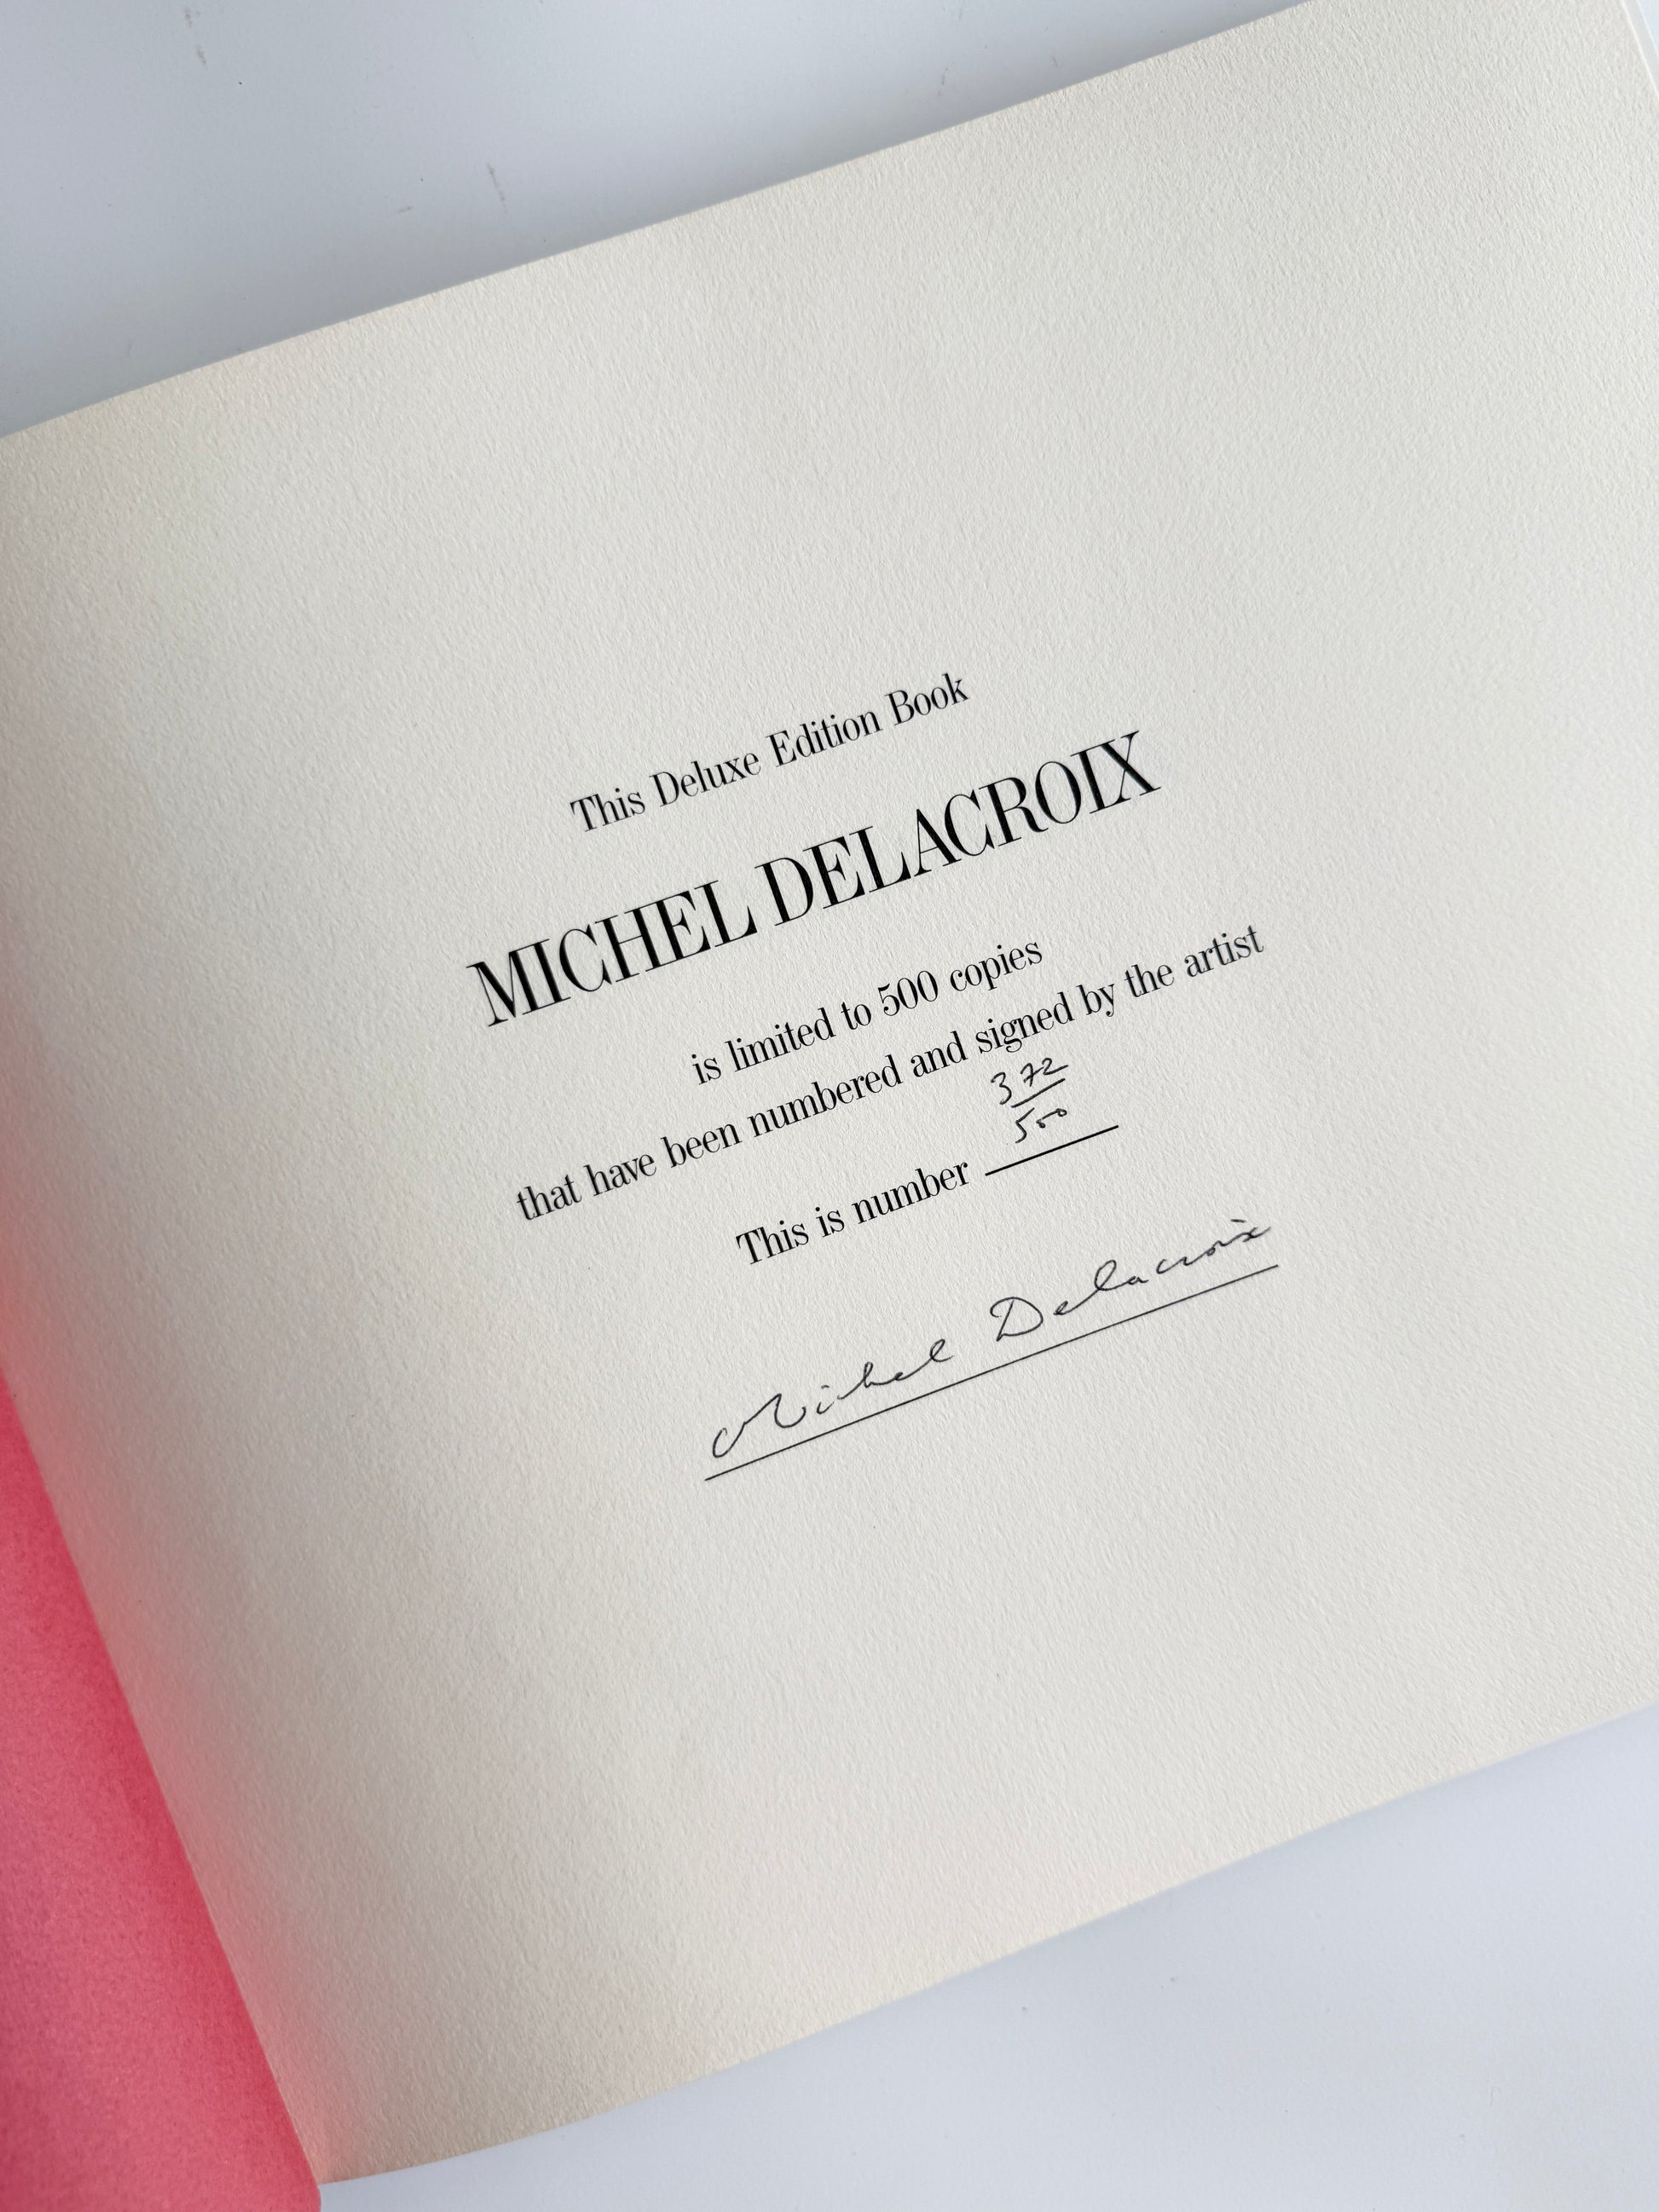 This Deluxe Edition Book
MICHEL DELACROIX
is limited to 500 copies
that have been numbered and signed by the artist
372
500
This is number
Michel Delacroix